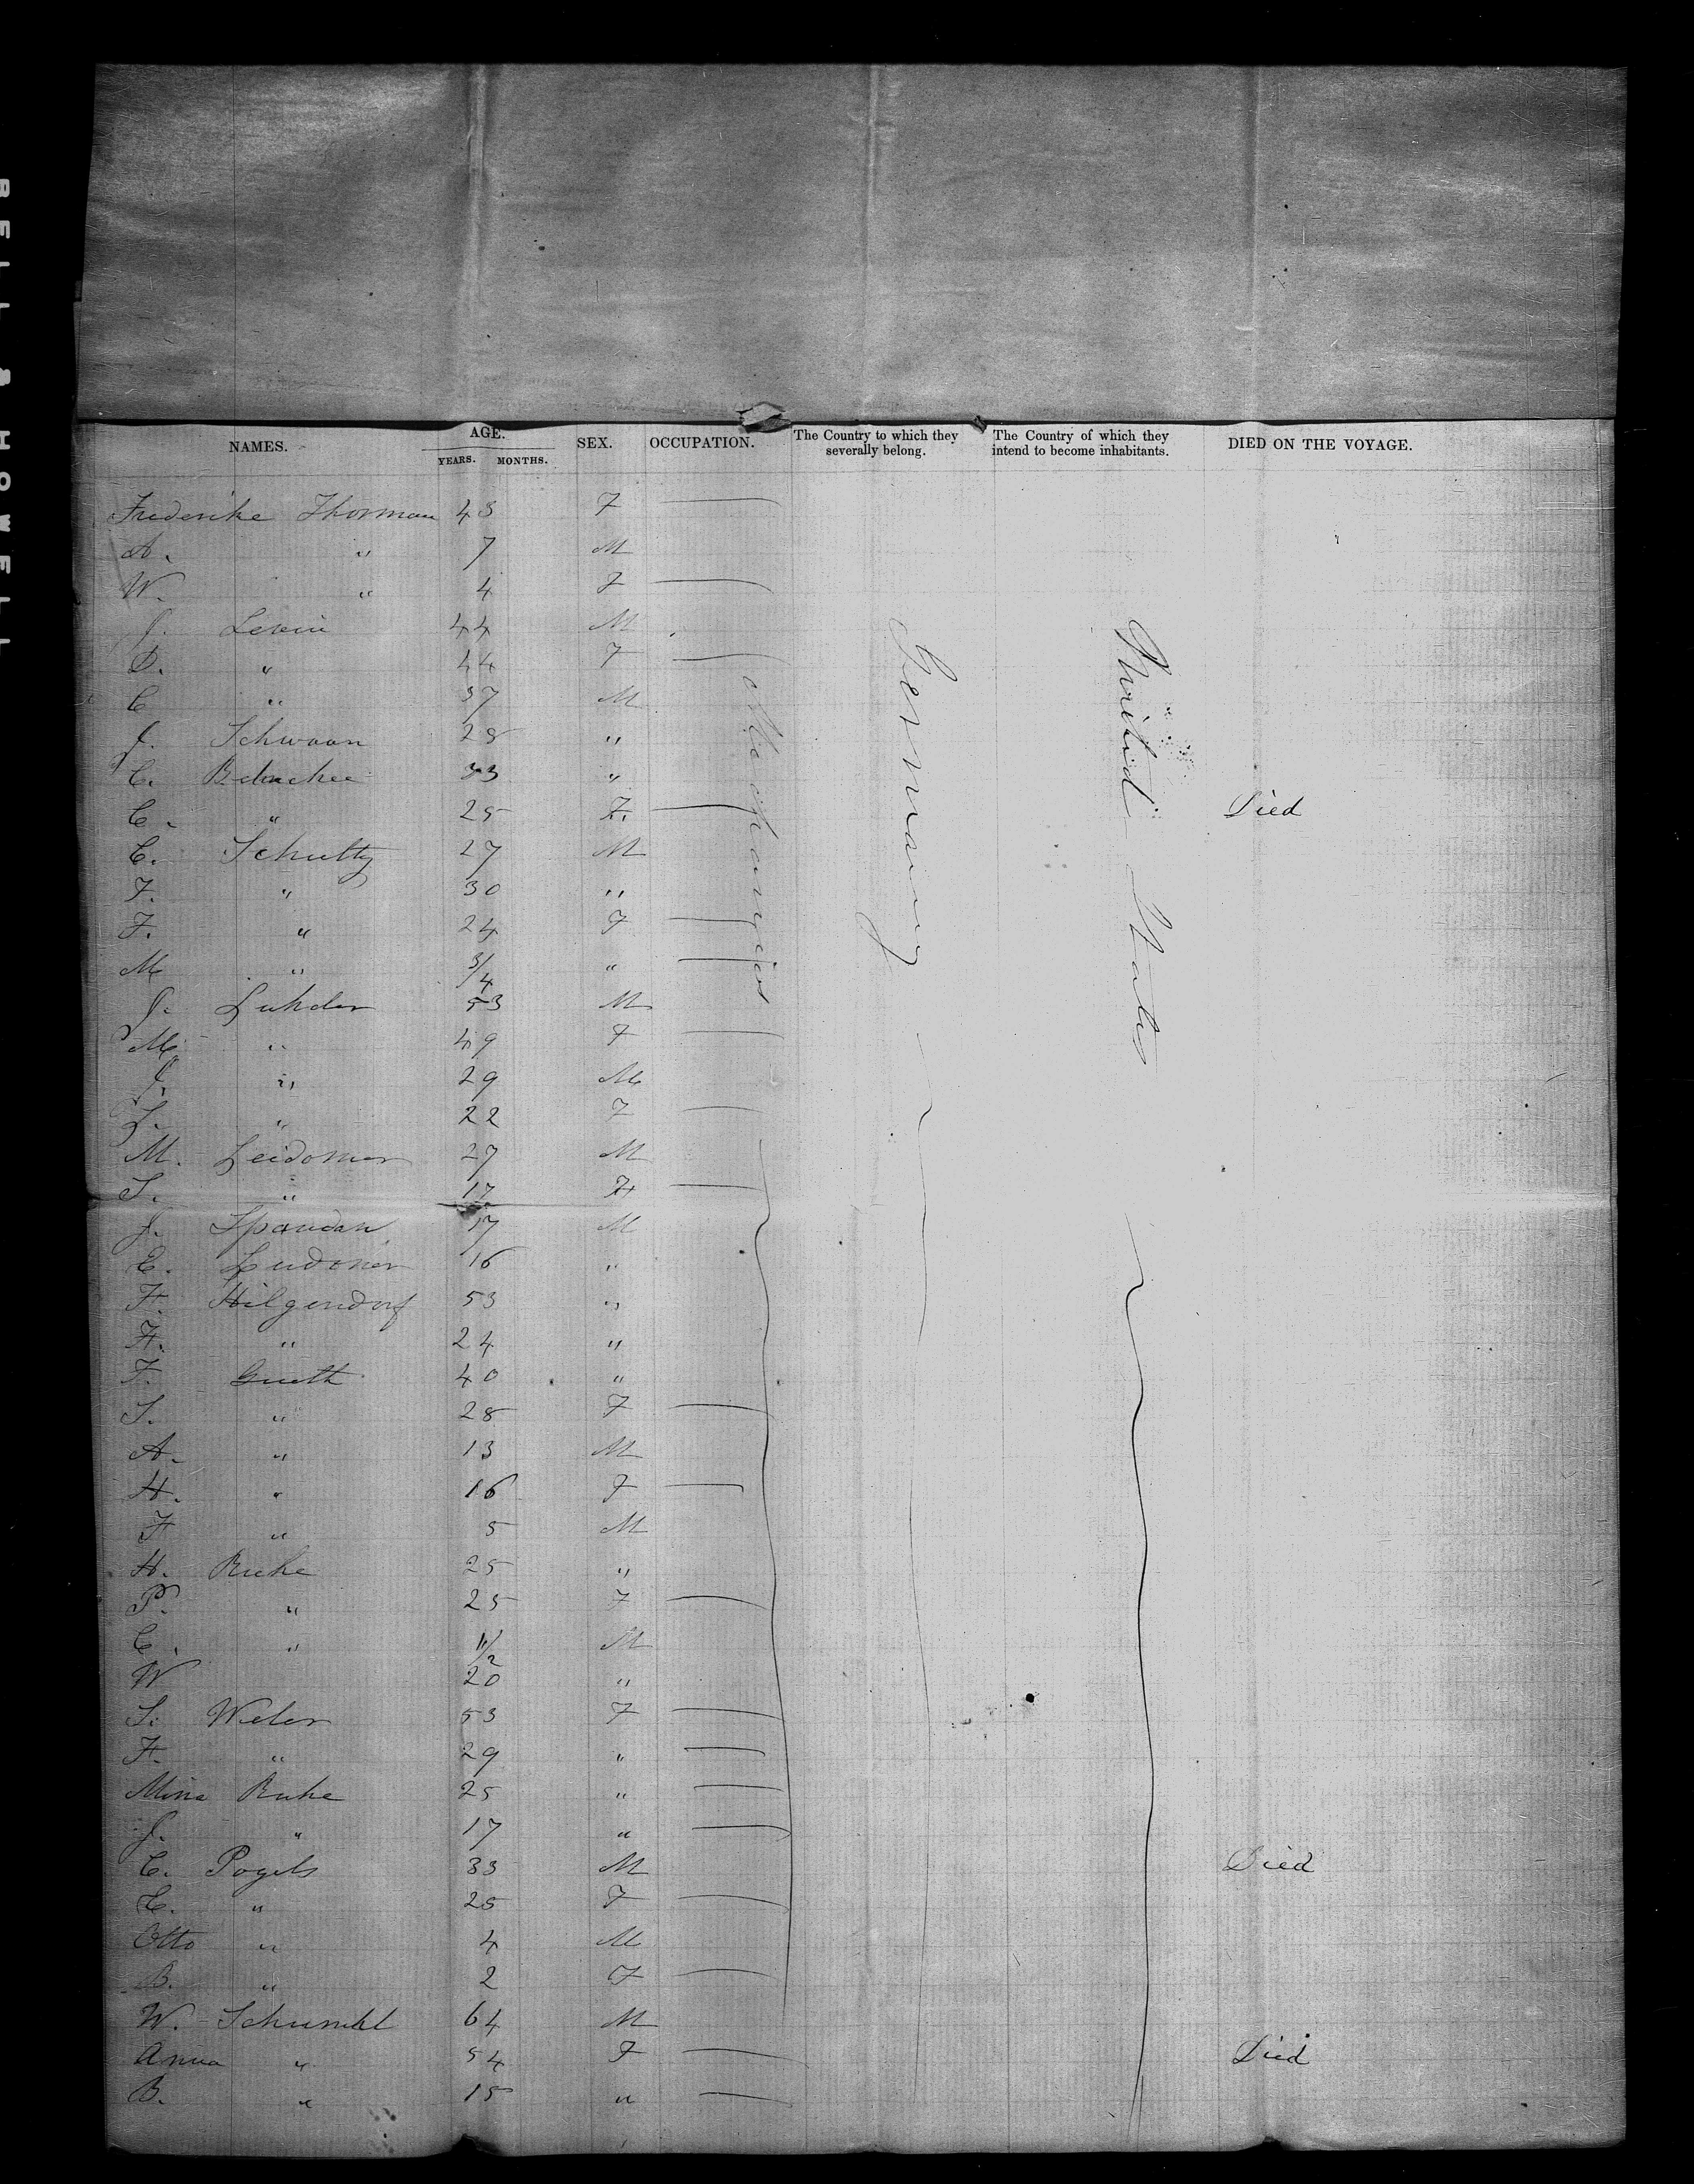 NAMES. AGE. SEX. OCCUPATION. The Country to which they severally belong. The Country of which they intend to become inhabitants. DIED ON THE VOYAGE.
YEARS. MONTHS.
Frederike Thorman 43 F
A. " 7 M
W. " 4 F
J. Levin 44 M
D. " 44 F
C " 37 M
J. Schwaan 28 "
C. 33 "
C. " 25 F. Died
C. Schultz 27 M
F. " 30 "
F. " 24 F
M " 3/4 "
J. Luhder 53 M
M. " 49 F
J. " 29 M
L. " 22 F
M. Leidomer 27 M
S. " 17 F
J. Spaudau 17 M
E. 16 "
F. Hilgendorf 53 "
F. " 24 "
F. Gueth 40 "
S. " 28 F
A. " 13 M
H. " 16 F
F " 5 M
H. Ruhe 25 "
P. " 25 F
C. " 1 1/2 M
W 20 "
S. 53 F
F. " 29 "
Mina Ruhe 25 "
J. " 17 "
C. Pogels 33 M Died
C. " 25 F
Otto " 4 M
B. " 2 F
W. 64 M
Anna " 54 F Died
B. " 15 "
Mechanics
Germany
United States
BELL & HOWELL